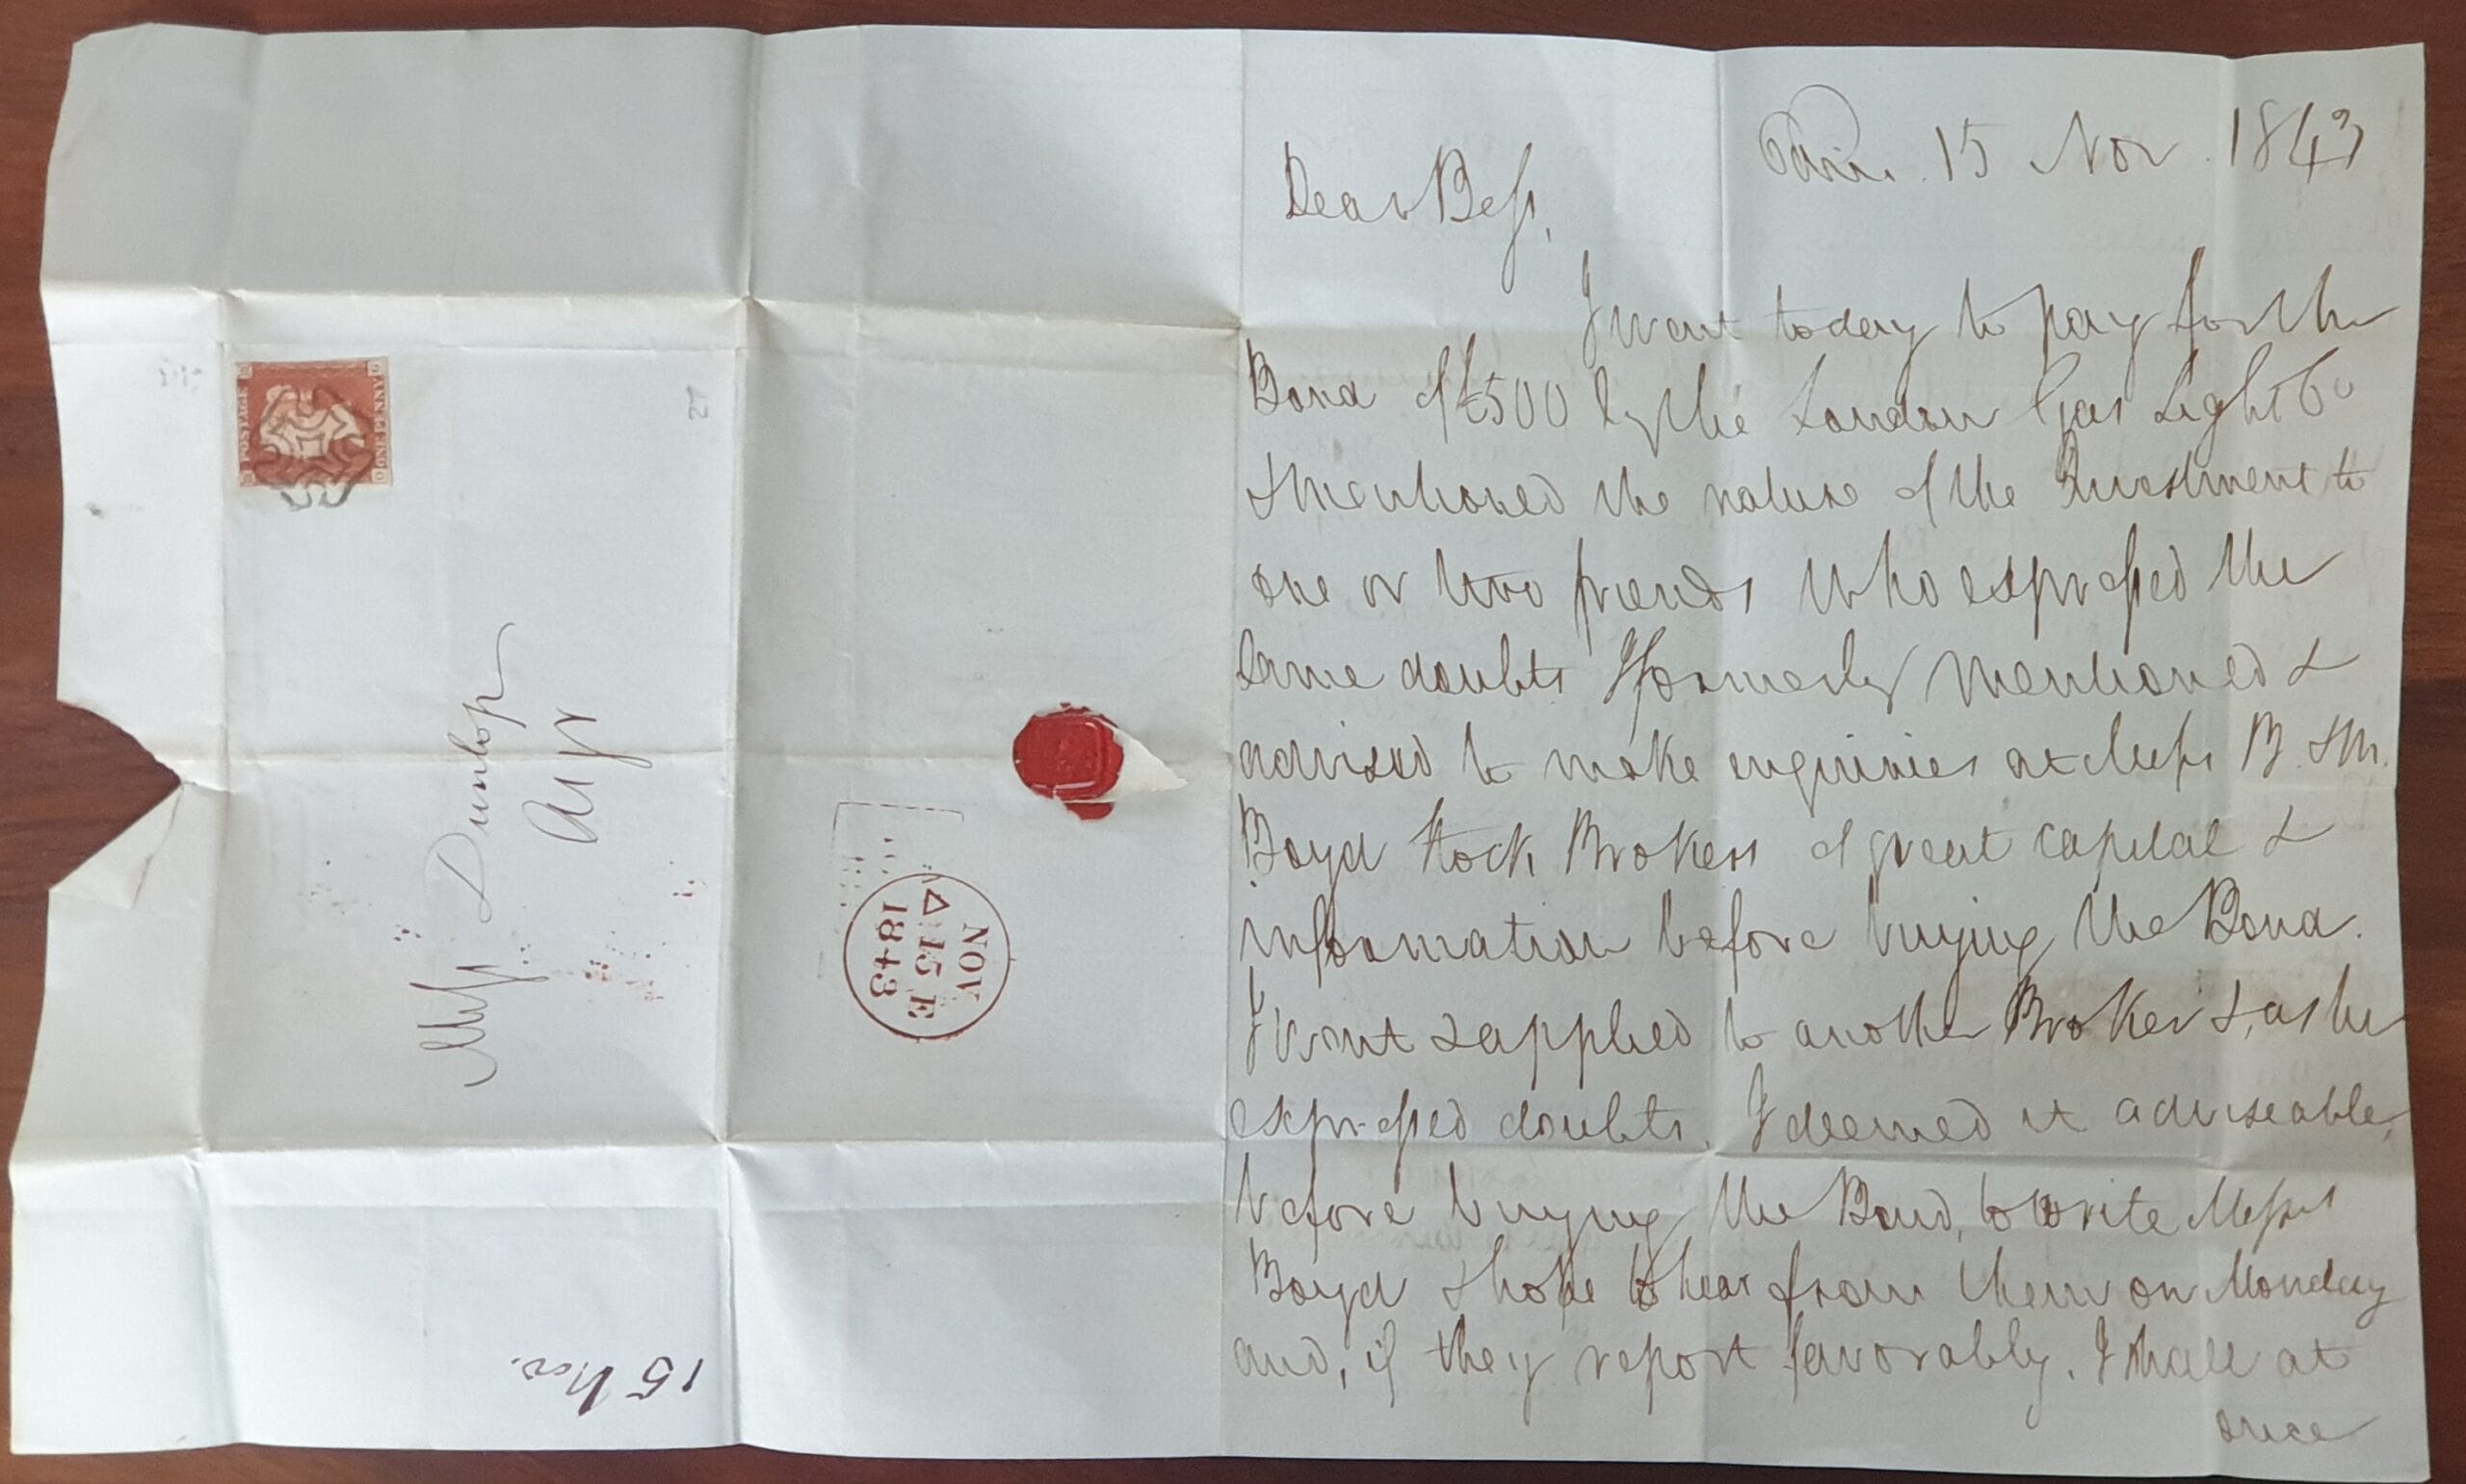 15 Nov 1843
Dear Bess,
I went today to pay for the
Bond of £500 by the London Gas Light Co
& mentioned the nature of the Investment to
one or two friends who expressed the
same doubts I formerly mentioned &
advised to make enquiries at Messrs B. & M.
Boyd Stock Brokers of great capital &
information before buying the Bond.
I went & applied to another Broker &, as he
expressed doubts, I deemed it adviseable,
before buying the Bond, to write Messrs
Boyd & hope to hear from them on Monday
and, if they report favorably, I shall at
once
Miss Dunlop
Ayr
POSTAGE
ONE PENNY
NOV
15 E
1843
15 Nov.